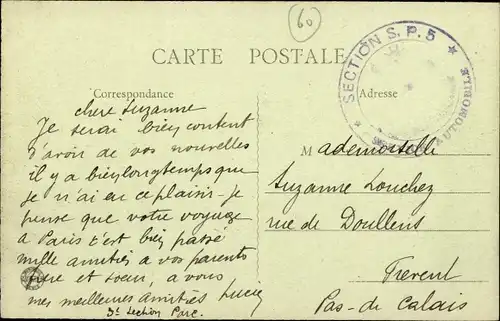 60
CARTE POSTALE
SECTION S. P. 5
AUTOMOBILE
Correspondance
Adresse
chere Suzanne
Je serai bien content
d'avoir de vos nouvelles
il y a bien longtemps que
je n'ai eu ce plaisir - je
pense que votre voyage
a Paris s'est bien passé
mille amitiés a vos parents
frere et soeur, a vous
mes meilleures amitiés Lucien
3e Section Parc.
Mademoiselle
Suzanne Louchez
rue de Doullens
Frevent
Pas-de Calais